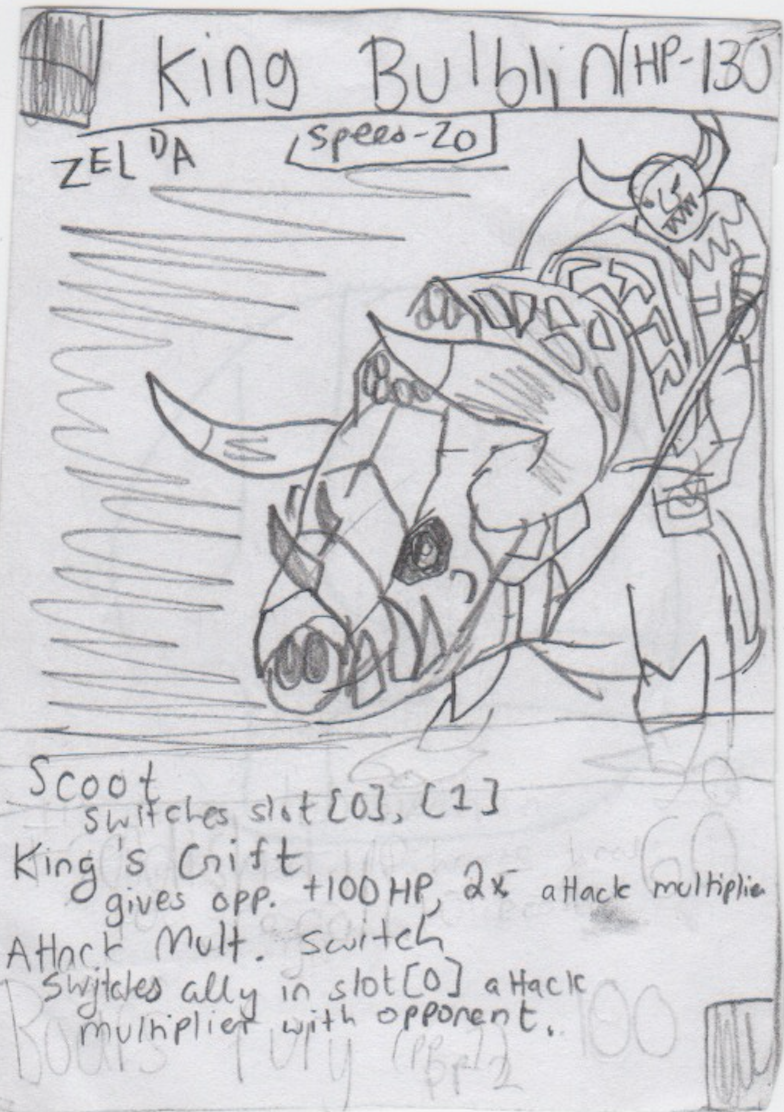 King Bulblin HP-130
ZELDA
Speed-20
Scoot
switches slot [0], [1]
King's Gift
gives opp. +100 HP, 2x attack multiplier
Attack Mult. Switch
Switches ally in slot [0] attack
multiplier with opponent.
60
Boar's Fury 100